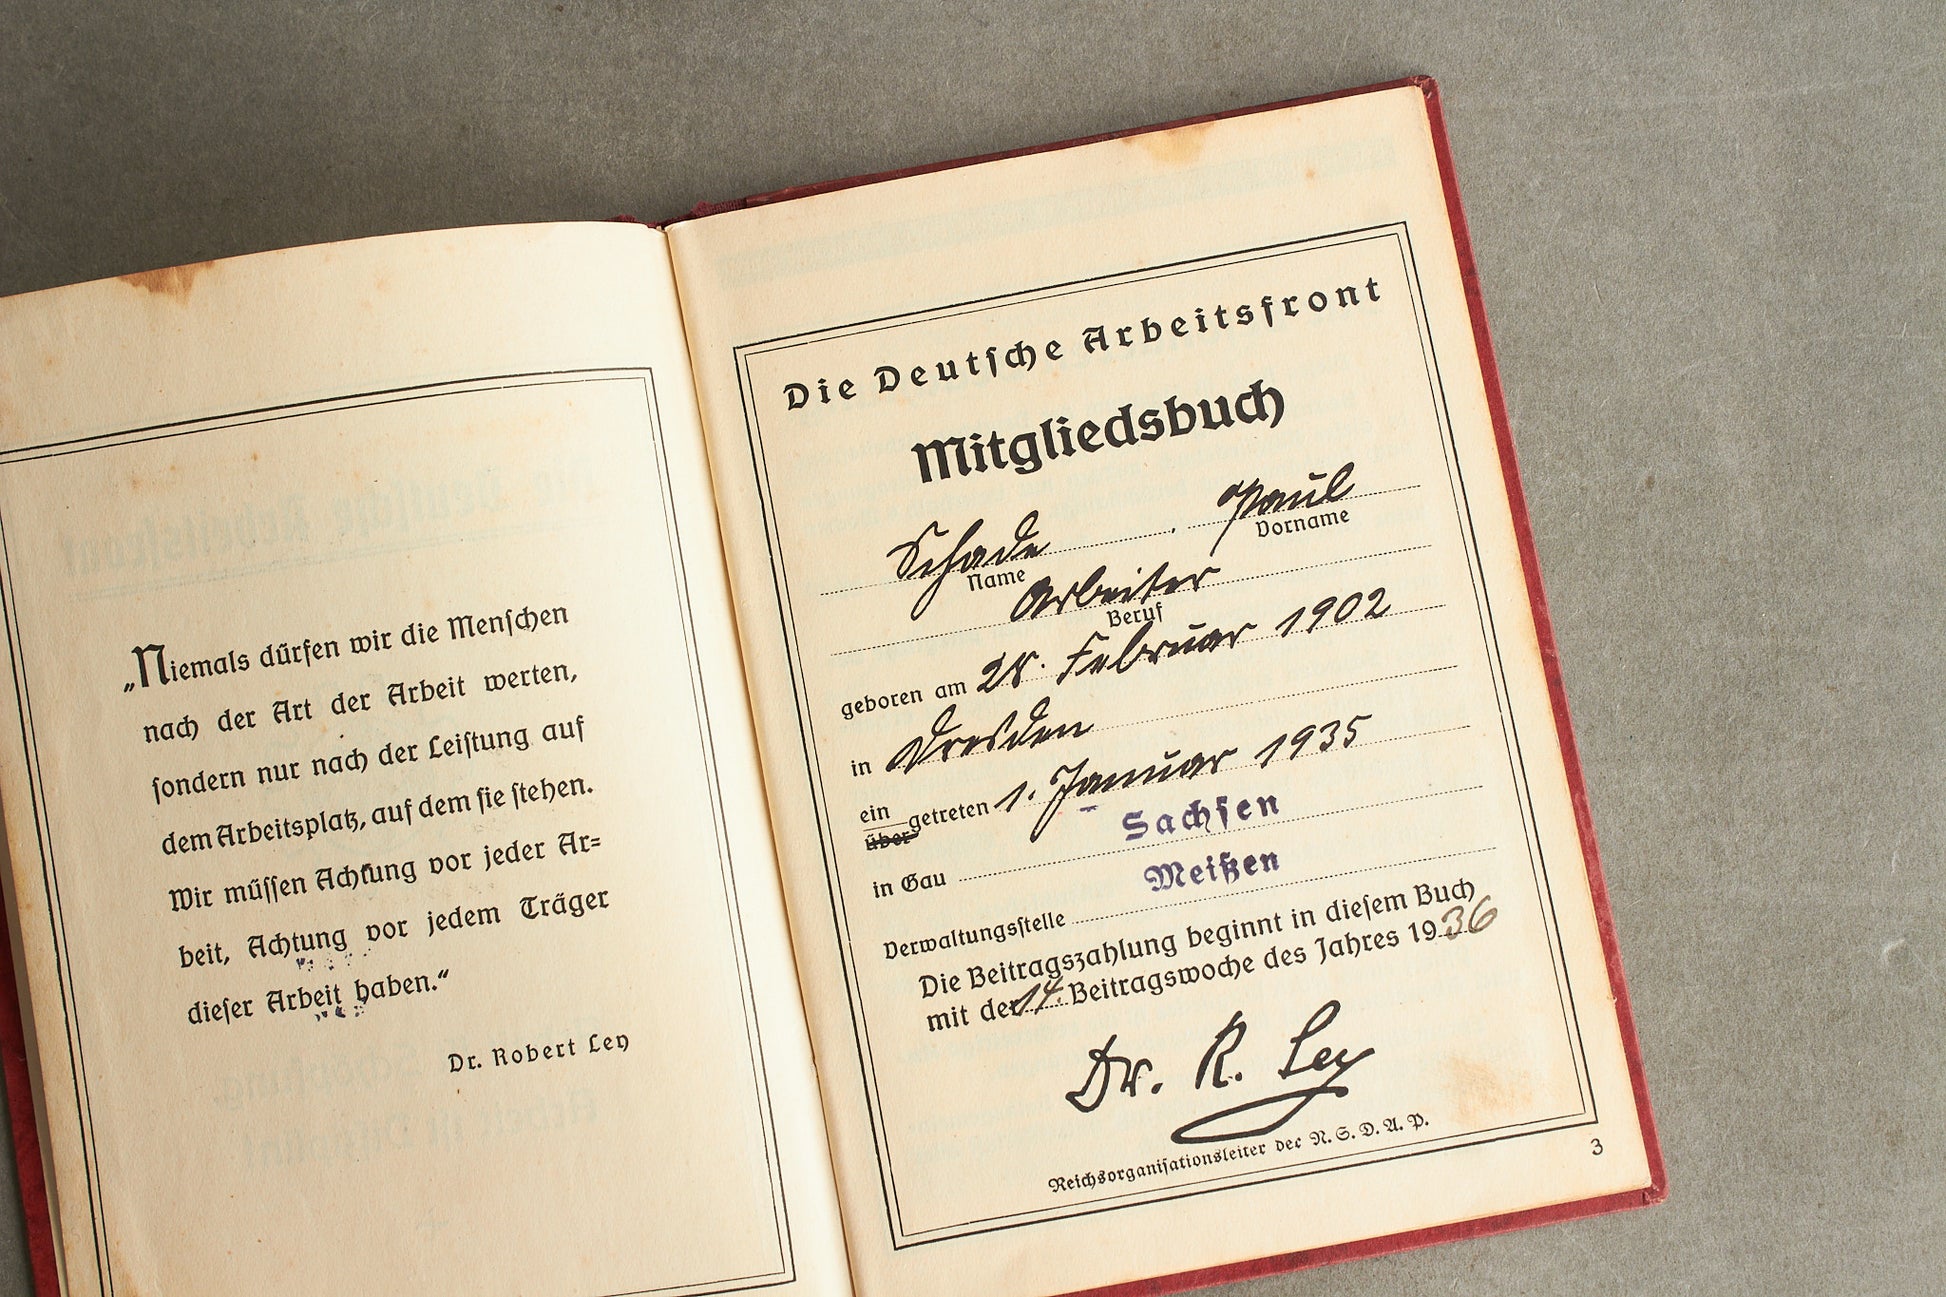 „Niemals dürfen wir die Menschen
nach der Art der Arbeit werten,
sondern nur nach der Leistung auf
dem Arbeitsplatz, auf dem sie stehen.
Wir müssen Achtung vor jeder Ar=
beit, Achtung vor jedem Träger
dieser Arbeit haben.“
Dr. Robert Ley
Die Deutsche Arbeitsfront
Mitgliedsbuch
Schade Paul
Name Vorname
Arbeiter
Beruf
geboren am 28. Februar 1902
in Dresden
ein getreten 1. Januar 1935
über
in Gau Sachsen
Verwaltungsstelle Meißen
Die Beitragszahlung beginnt in diesem Buch
mit der 14. Beitragswoche des Jahres 1936
Dr. R. Ley
Reichsorganisationsleiter der N.S.D.A.P.
3